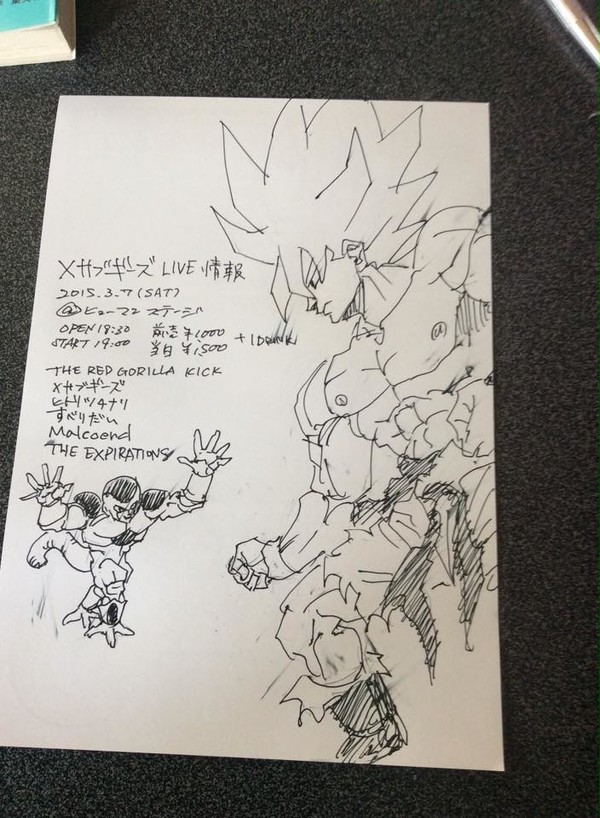 Xサブギーズ LIVE 情報
2015.3.7(SAT)
@ヒューマンステージ
OPEN 18:30 前売 ¥1,000
START 19:00 当日 ¥1,500 +1DRINK
THE RED GORILLA KICK
Xサブギーズ
ヒトリヅナリ
すべりだい
Malcoend
THE EXPIRATIONS